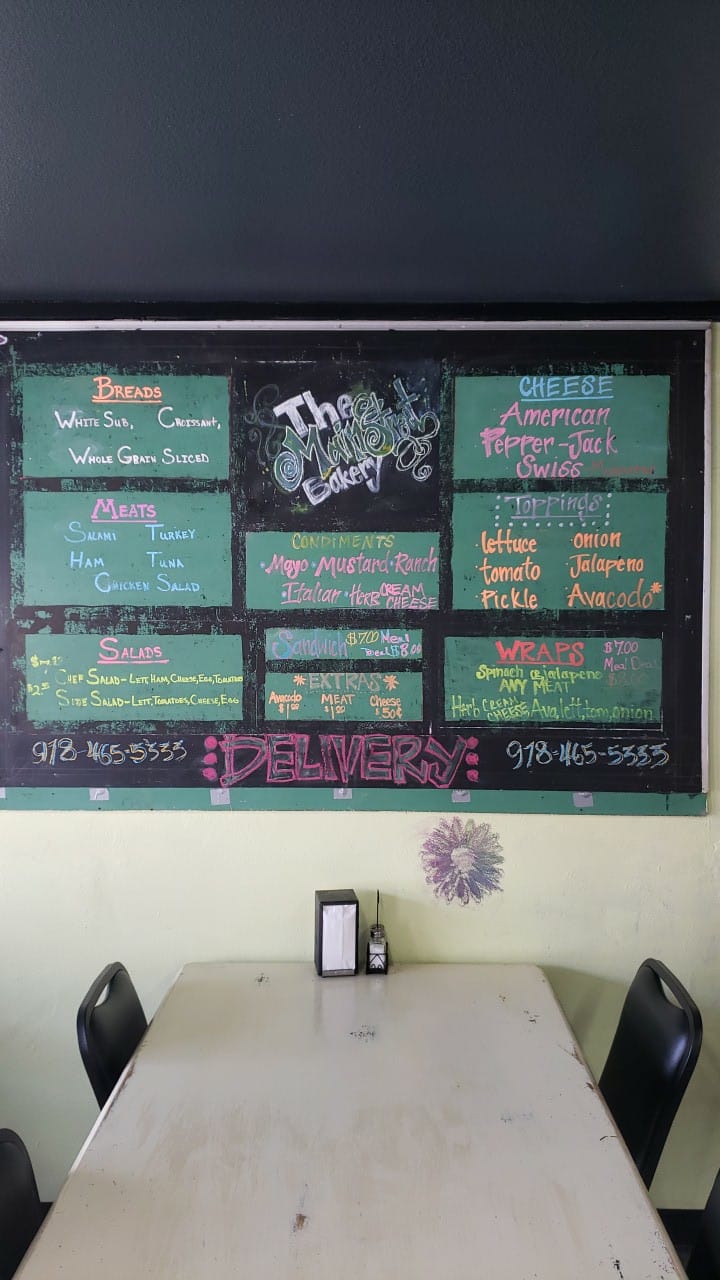 BREADS
WHITE SUB, CROISSANT,
WHOLE GRAIN SLICED
The
Main Street
Bakery
CHEESE
American
Pepper-Jack
Swiss
MEATS
SALAMI TURKEY
HAM TUNA
CHICKEN SALAD
CONDIMENTS
• Mayo • Mustard • Ranch
• Italian • Herb CREAM CHEESE
Toppings
• lettuce • onion
• tomato • Jalapeno
• Pickle • Avacodo*
SALADS
CHEF SALAD - LETT, HAM, CHEESE, EGG, TOMATOES
SIDE SALAD - LETT, TOMATOES, CHEESE, EGG
Sandwich $7.00 Meal Deal $8.00
*EXTRAS*
Avacado MEAT Cheese
$1.00 $1.00 50¢
WRAPS $7.00
Spinach or jalapeno Meal Deal
ANY MEAT
Herb CREAM CHEESE, Ava, lett, tom, onion
978-465-5333 DELIVERY 978-465-5333